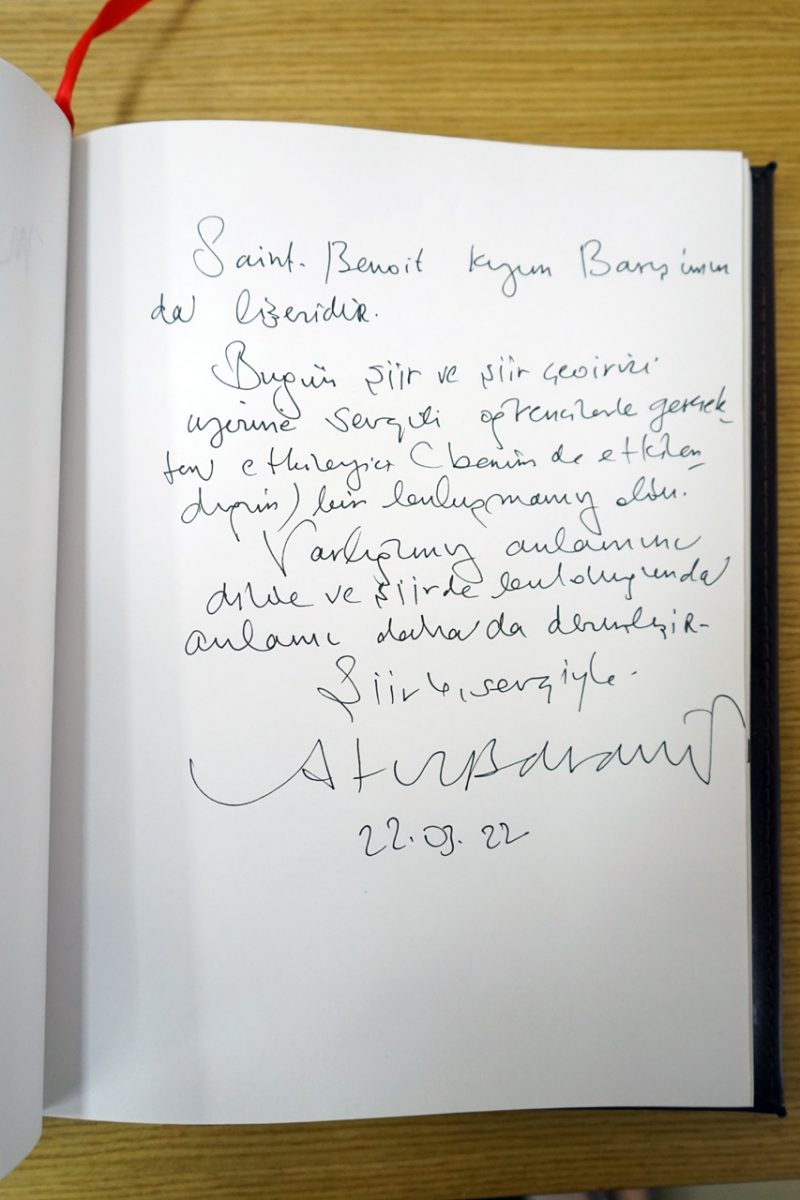 Saint-Benoit kızım Barış'ımın
da lisesidir.
Bugün şiir ve şiir çevirisi
üzerine sevgili öğrencilerle gerçek-
ten etkileyici (benim de etkilen-
diğim) bir buluşmamız oldu.
Varlığımız anlamını
dilde ve şiirde bulduğunda
anlamı daha da derinleşir.
Şiirle, sevgiyle.
Ataol Behramoğlu
22.03.22